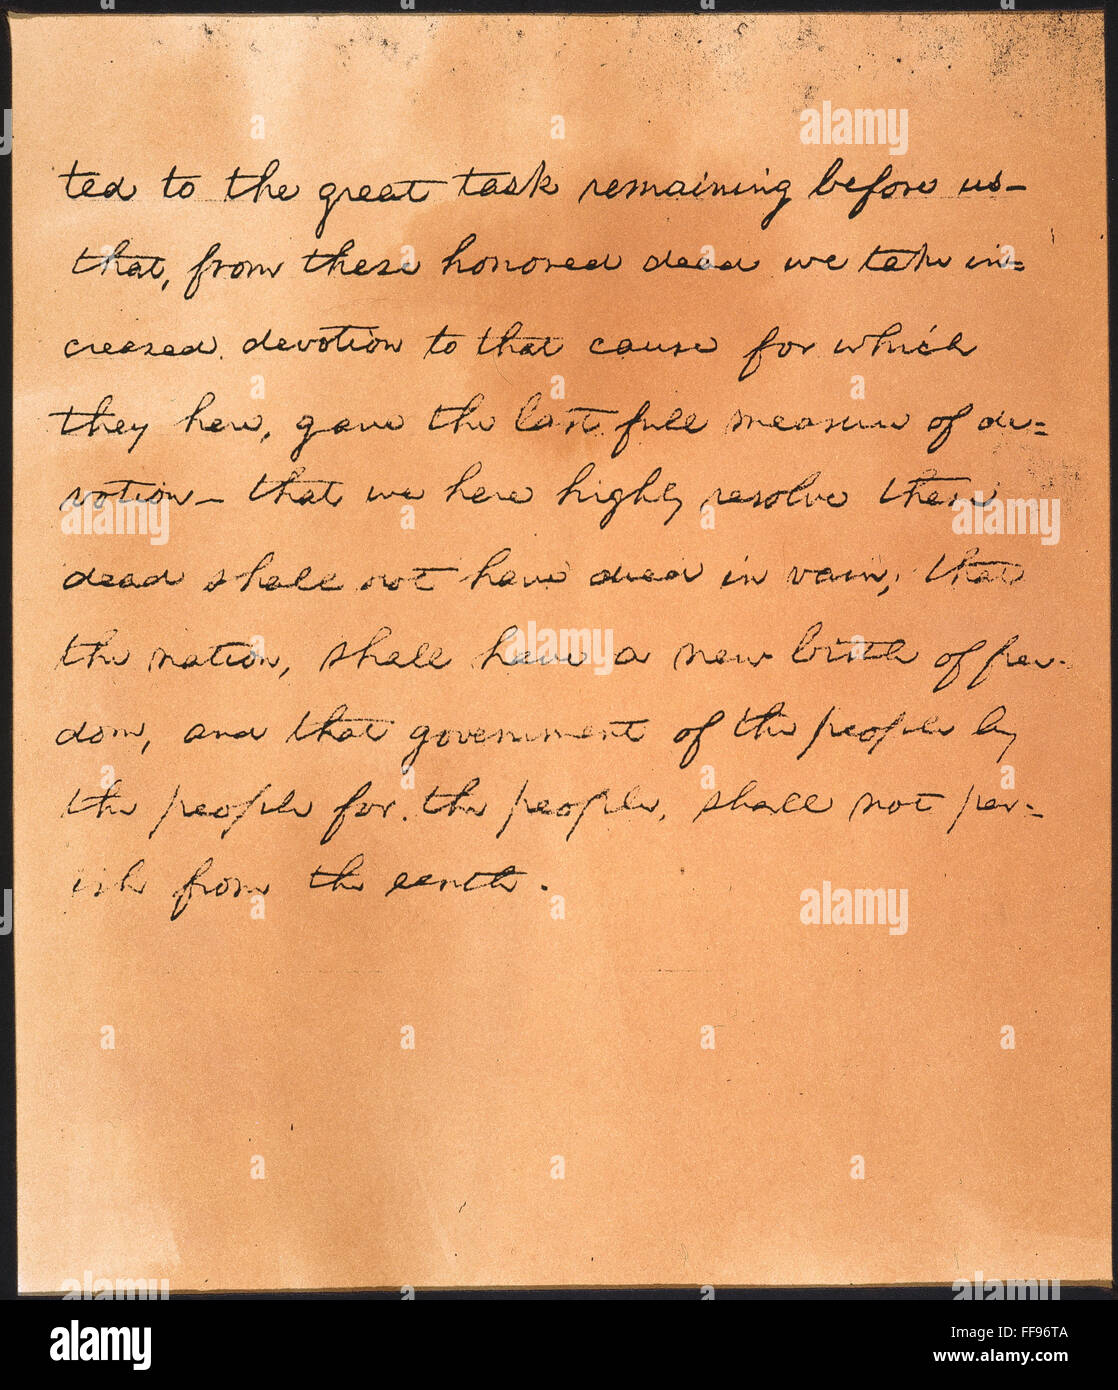 ted to the great task remaining before us—
that, from these honored dead we take in=
creased devotion to that cause for which
they here, gave the last full measure of de=
votion— that we here highly resolve these
dead shall not have died in vain; that
the nation, shall have a new birth of free-
dom, and that government of the people by
the people for the people, shall not per=
ish from the earth.
alamy
Image ID: FF96TA
www.alamy.com